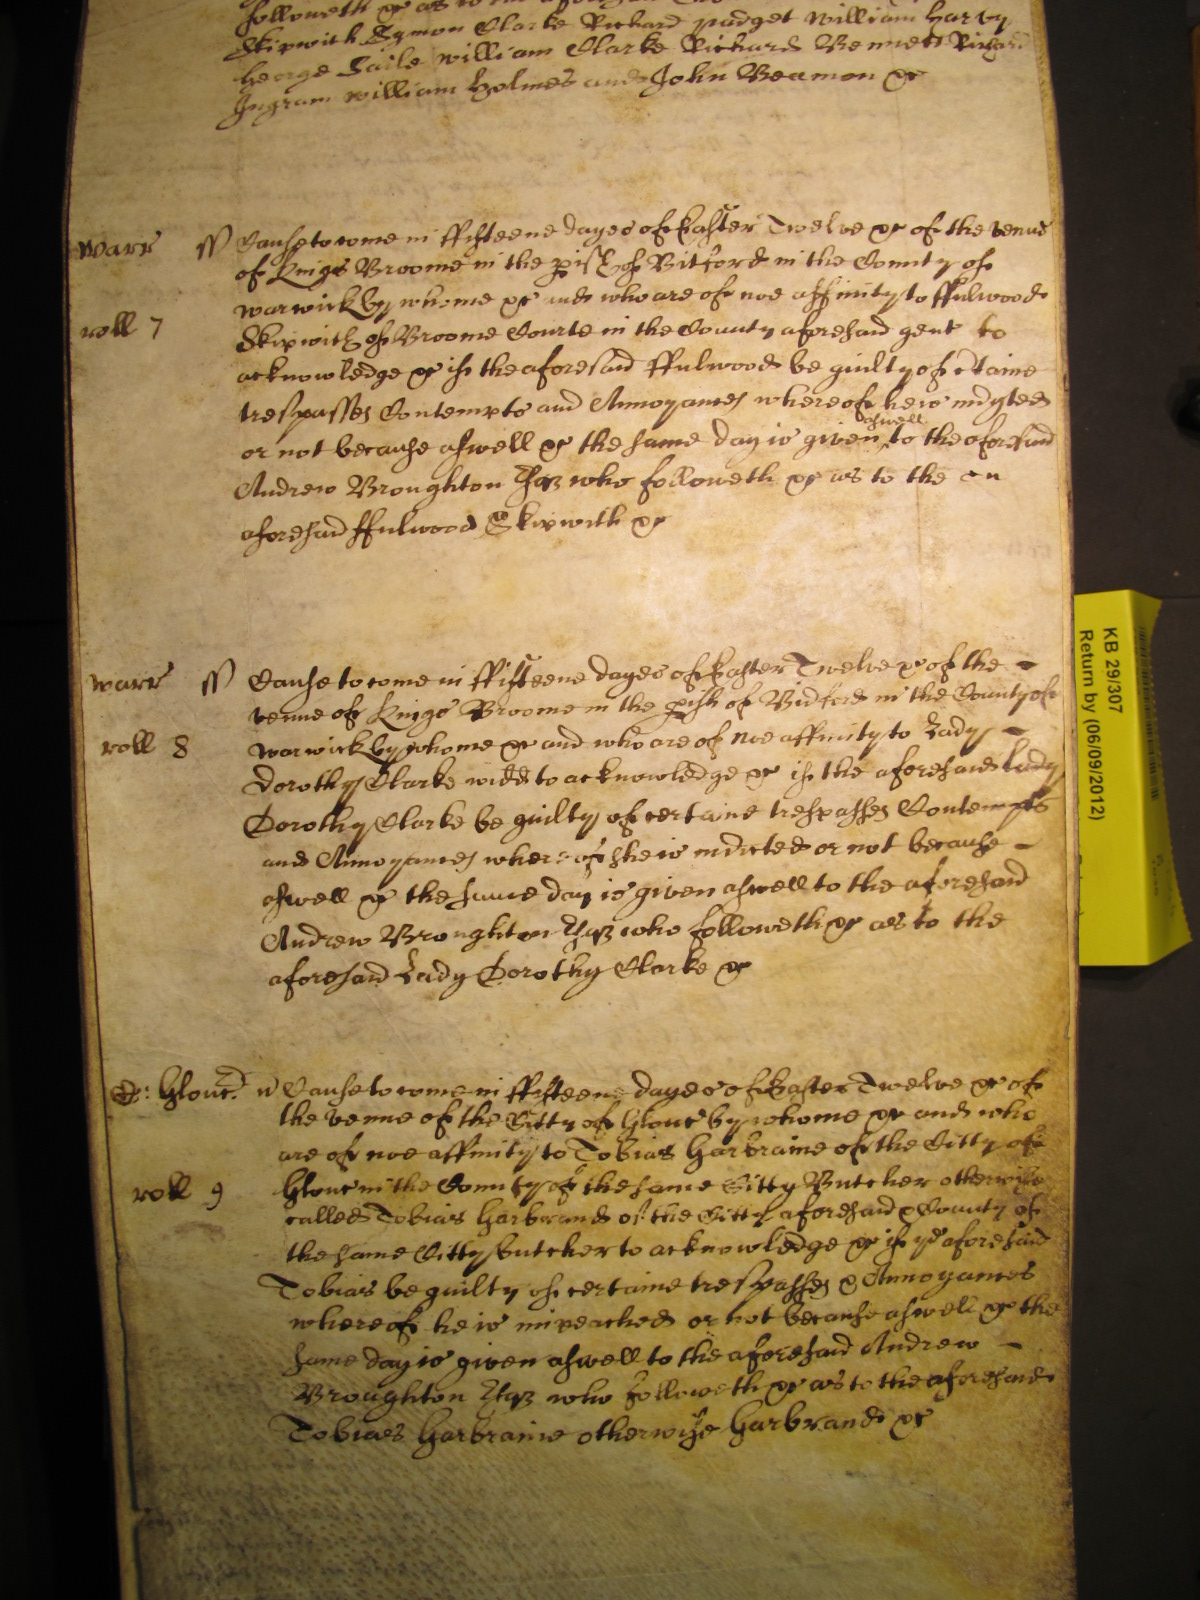 followeth &c as to the aforesaid
Skipwith Symon Clarke Richard padget william harvy
George Saile william Clarke Richard Bennett Richard
Ingram william Holmes and John Beamon &c
warr ss Cause to come in ffifteene dayes of Easter Twelve &c of the venue
of Kings Broome in the pish of Bitford in the County of
warwick by whome &c and who are of noe affinity to ffulwood
roll 7 Skipwith of Broome Courte in the County aforesaid gent to
acknowledge &c if the aforesaid ffulwood be guilty of ctaine
trespasses Contempts and Annoyances whereof he is indyted
or not because aswell &c the same day is given aswell to the aforesaid
Andrew Broughton Esqz who followeth &c as to the
aforesaid ffulwood Skipwith &c
warr ss Cause to come in ffifteene dayes of Easter Twelve &c of the
venue of Kings Broome in the pish of Bidford in the County of
roll 8 warwick by whome &c and who are of noe affinity to Lady
Dorothy Clarke widd to acknowledge &c if the aforesaid Lady
Dorothy Clarke be guilty of certaine trespasses Contempts
and Annoyances whereof she is indicted or not because
aswell &c the same day is given aswell to the aforesaid
Andrew Broughton Esqz who followeth &c as to the
aforesaid Lady Dorothy Clarke &c
Glouc Cause to come in ffifteene dayes of Easter Twelve &c of
the venue of the Citty of Glouc by whome &c and who
are of noe affinity to Tobias Harbraine of the Citty of
roll 9 Glouc in the County of the same Citty Butcher otherwise
called Tobias Harbrand of the Citty aforesaid & County of
the same Citty butcher to acknowledge &c if ye aforesaid
Tobias be guilty of certaine trespasses & Annoyances
whereof he is impeached or not because aswell &c the
same day is given aswell to the aforesaid Andrew
Broughton Esqz who followeth &c as to the aforesaid
Tobias Harbraine otherwise Harbrand &c
KB 29/307
Return by (06/09/2012)